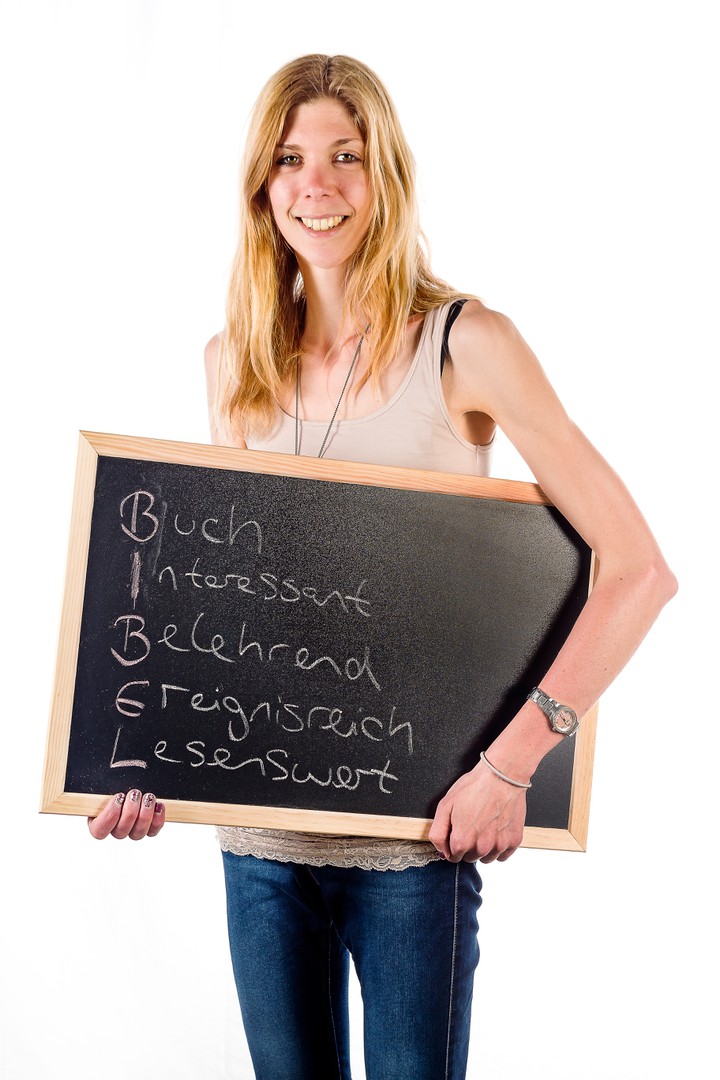 Buch
Interessant
Belehrend
Ereignisreich
Lesenswert